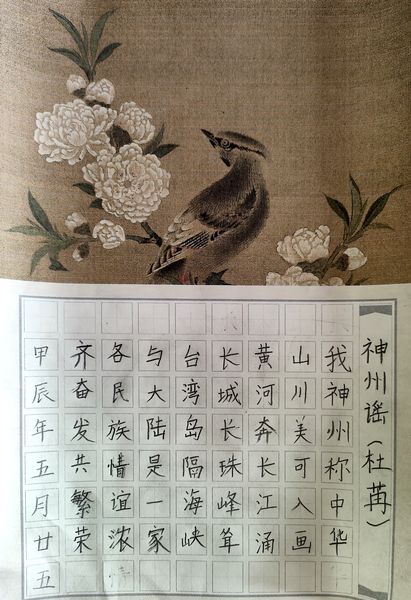 神州谣（杜苒）
我神州称中华
山川美可入画
黄河奔长江涌
长城长珠峰耸
台湾岛隔海峡
与大陆是一家
各民族情谊浓
齐奋发共繁荣
甲辰年五月廿五